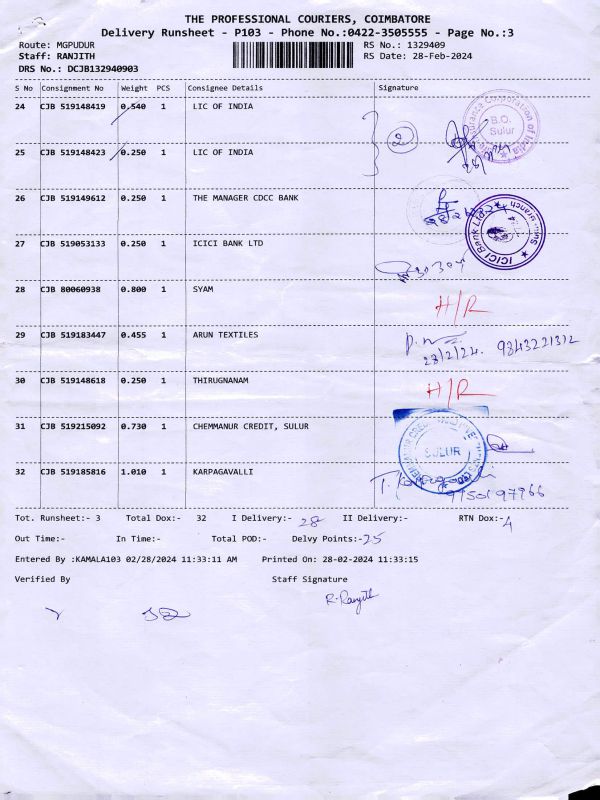 THE PROFESSIONAL COURIERS, COIMBATORE
Delivery Runsheet - P103 - Phone No.:0422-3505555 - Page No.:3
Route: MGPUDUR RS No.: 1329409
Staff: RANJITH RS Date: 28-Feb-2024
DRS No.: DCJB132940903
S No Consignment No Weight PCS Consignee Details Signature
24 CJB 519148419 0.540 1 LIC OF INDIA
2
B.O.
Sulur
25 CJB 519148423 0.250 1 LIC OF INDIA
26 CJB 519149612 0.250 1 THE MANAGER CDCC BANK
27 CJB 519053133 0.250 1 ICICI BANK LTD
ICICI Bank Ltd
28 CJB 80060938 0.800 1 SYAM H/R
29 CJB 519183447 0.455 1 ARUN TEXTILES
28/2/24. 9843221312
30 CJB 519148618 0.250 1 THIRUGNANAM H/R
31 CJB 519215092 0.730 1 CHEMMANUR CREDIT, SULUR
SULUR
32 CJB 519185816 1.010 1 KARPAGAVALLI
9750197966
Tot. Runsheet:- 3 Total Dox:- 32 I Delivery:- 28 II Delivery:- RTN Dox:- 4
Out Time:- In Time:- Total POD:- Delvy Points:- 25
Entered By :KAMALA103 02/28/2024 11:33:11 AM Printed On: 28-02-2024 11:33:15
Verified By Staff Signature
R. Ranjith